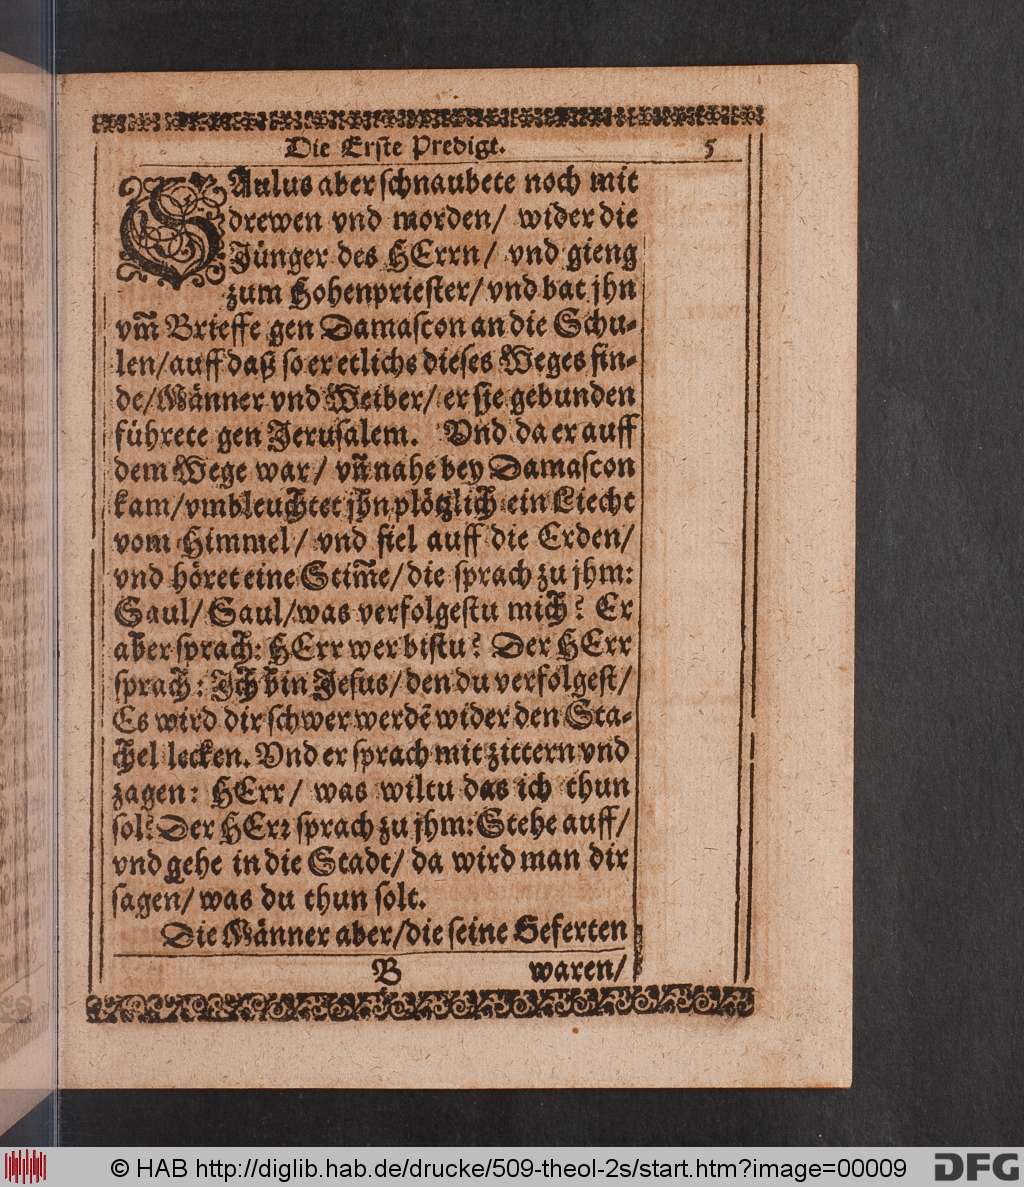 Die Erste Predigt. 5
SAulus aber schnaubete noch mit
drewen vnd morden/ wider die
Jünger des HErrn/ vnd gieng
zum Hohenpriester/ vnd bat jhn
vm̃ Brieffe gen Damascon an die Schu-
len/ auff daß so er etliche dieses Weges fin-
de/ Männer vnd Weiber/ er sie gebunden
führete gen Jerusalem. Vnd da er auff
dem Wege war/ vñ nahe bey Damascon
kam/ vmbleuchtet jhn plötzlich ein Liecht
vom Himmel/ vnd fiel auff die Erden/
vnd höret eine Stim̃e/ die sprach zu jhm:
Saul/ Saul/ was verfolgestu mich? Er
aber sprach: HErr wer bistu? Der HErr
sprach: Ich bin Jesus/ den du verfolgest/
Es wird dir schwer werdẽ wider den Sta-
chel lecken. Vnd er sprach mit zittern vnd
zagen: HErr/ was wiltu das ich thun
sol? Der HErꝛ sprach zu jhm: Stehe auff/
vnd gehe in die Stadt/ da wird man dir
sagen/ was du thun solt.
Die Männer aber/ die seine Geferten
B waren/
© HAB http://diglib.hab.de/drucke/509-theol-2s/start.htm?image=00009 DFG